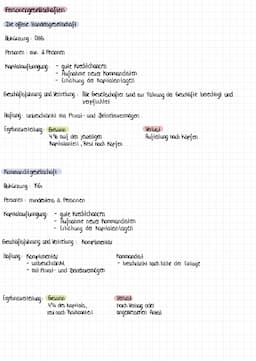 Personengesellschaften
Die offene Handelsgesellschaft
Abkürzung: OHG
Personen: min. 2 Personen
Kapitalaufbringung: - gute Kreditchancen
- Aufnahme neuer Kommanditen
- Erhöhung der Kapitaleinlagen
Geschäftsführung und Vertretung: Alle Gesellschafter sind zur Führung der Geschäfte berechtigt und
verpflichtet
Haftung: unbeschränkt mit Privat- und Betriebsvermögen
Ergebnisverteilung: Gewinn Verlust
4% auf den jeweiligen Aufteilung nach Köpfen
Kapitalanteil, Rest nach Köpfen
Kommanditgesellschaft
Abkürzung: KG
Personen: mindestens 2 Personen
Kapitalaufbringung: - gute Kreditchancen
- Aufnahme neuer Kommanditisten
- Erhöhung der Kapitaleinlagen
Geschäftsführung und Vertretung: Komplementär
Haftung: Komplementär Kommanditist
- unbeschränkt - beschränkt nach Höhe der Einlage
- mit Privat- und Betriebsvermögen
Ergebnisverteilung: Gewinn Verlust
4% des Kapitals, nach Vertrag oder
Rest nach Risikoanteil angemessenem Anteil